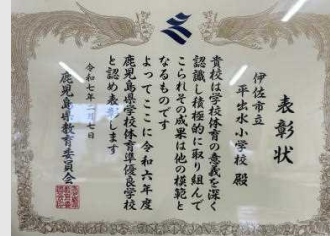 表彰状
伊佐市立
平出水小学校 殿
貴校は学校体育の意義を深く
認識し積極的に取り組んで
こられその成果は他の模範と
なるものです
よってここに令和六年度
鹿児島県学校体育準優良学校
と認め表彰します
令和七年 月七日
鹿児島県教育委員会